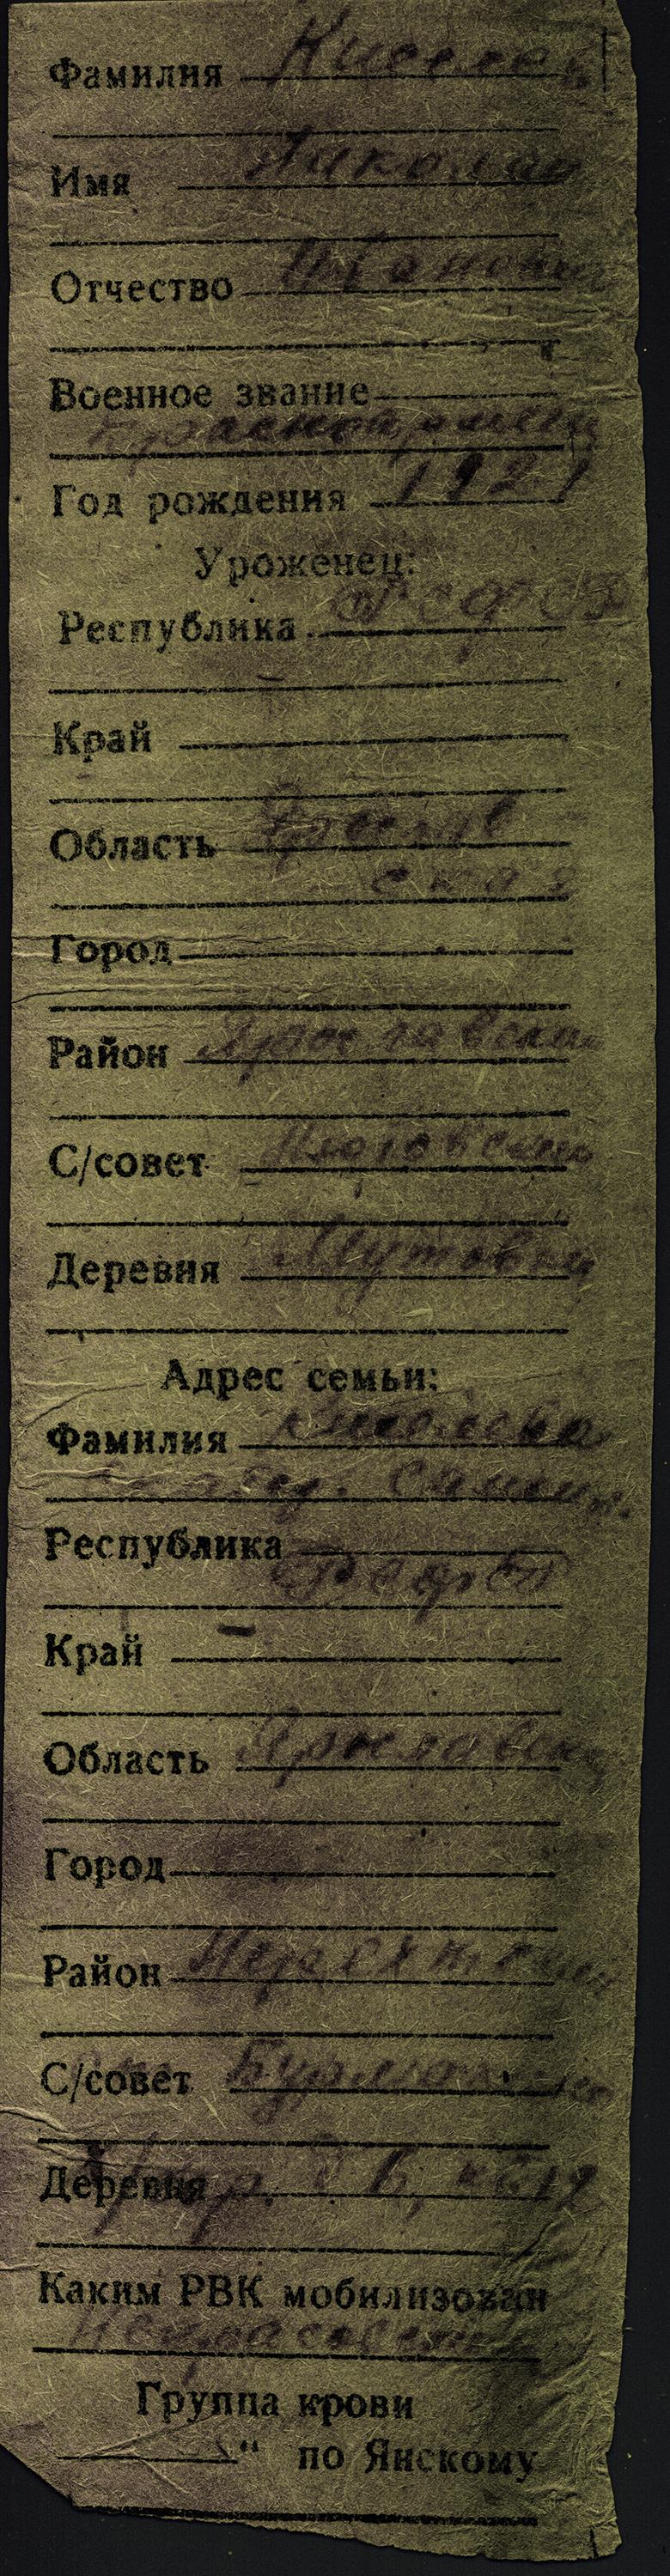 Фамилия Киселев
Имя Николай
Отчество Иванович
Военное звание
красноармеец
Год рождения 1921
Уроженец:
Республика РСФСР
Край
Область
ская
Город
Район Ярославский
С/совет
Деревня Мутовки
Адрес семьи:
Фамилия Киселева
Республика
РСФСР
Край
Область Ярославская
Город
Район Нерехтский
С/совет Бурмакинс
Деревня
Каким РВК мобилизован
Группа крови
" по Янскому